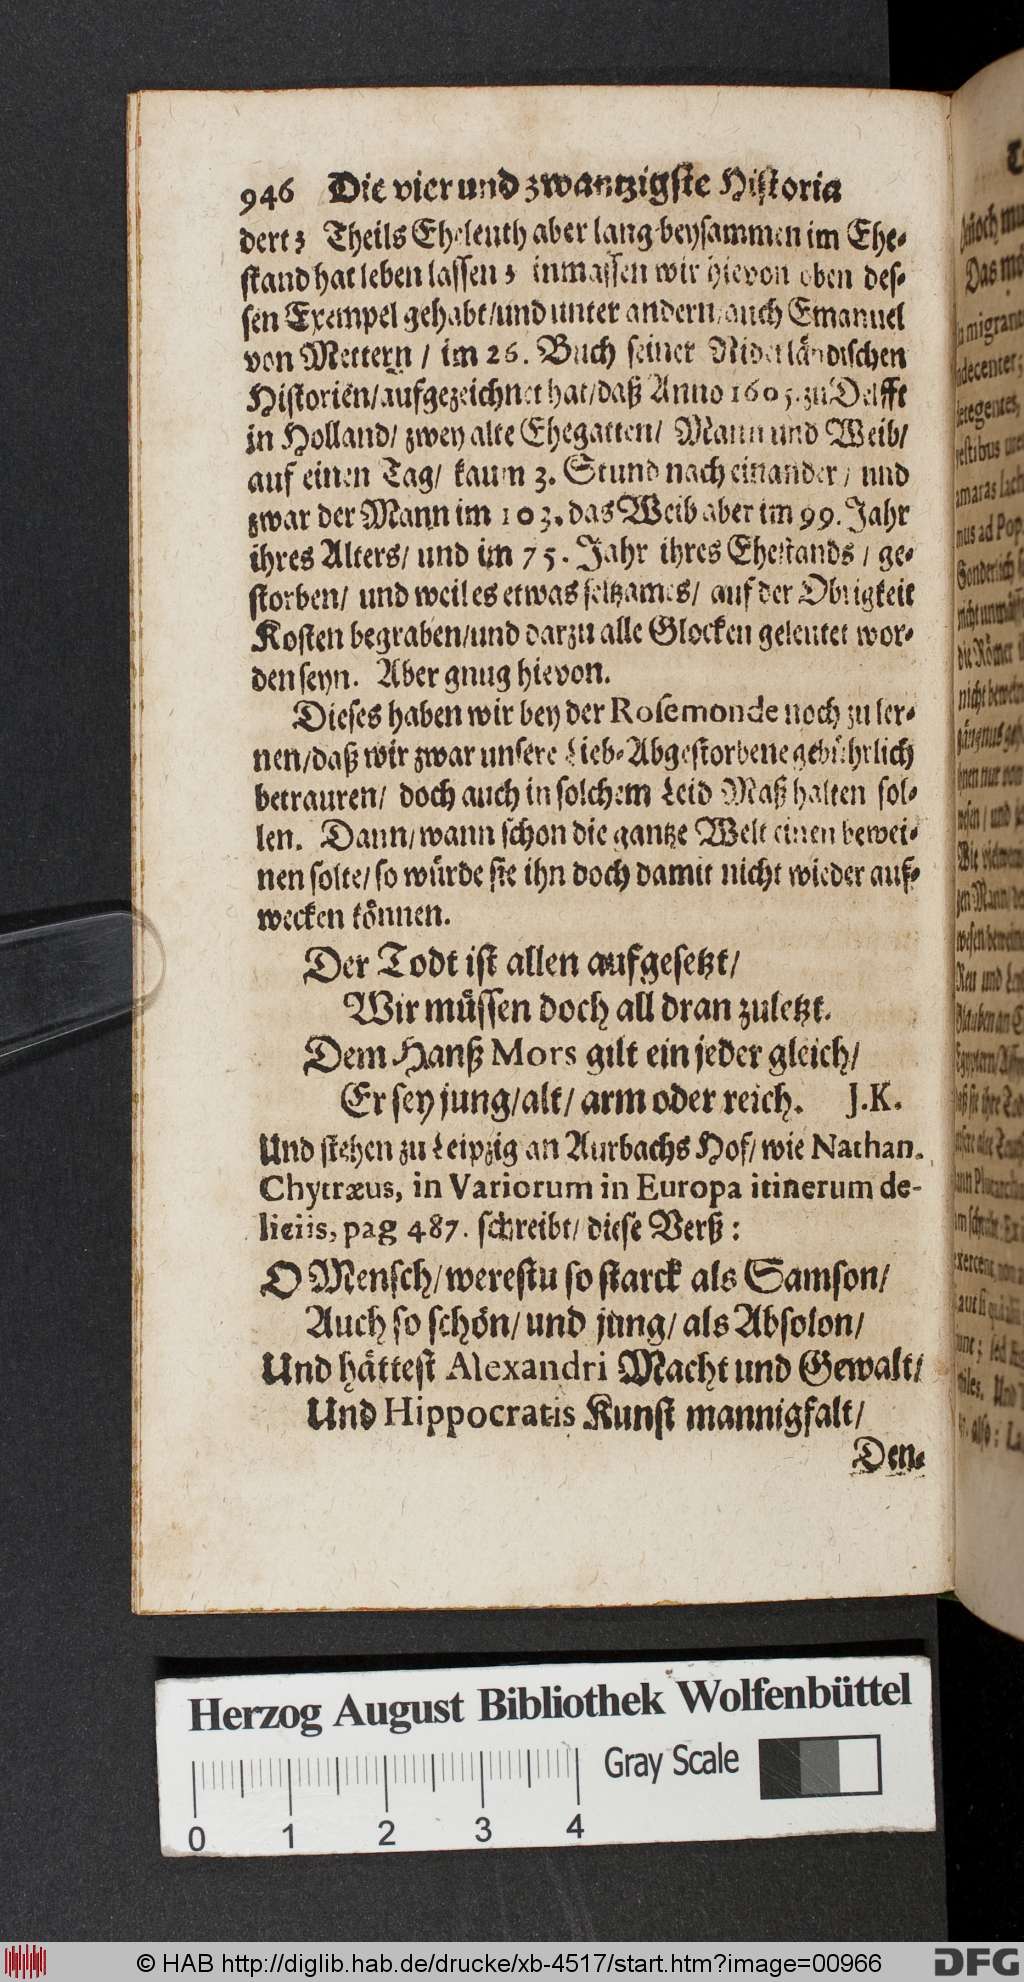 946 Die vier und zwantzigste Historia
dert; Theils Eheleuth aber lang beysammen im Ehe-
stand hat leben lassen; inmassen wir hievon oben des-
sen Exempel gehabt/und unter andern/auch Emanuel
von Mettern / im 26. Buch seiner Niderländischen
Historien/aufgezeichnet hat/daß Anno 1605. zu Delfft
in Holland/ zwey alte Ehegatten/ Mann und Weib/
auf einen Tag/ kaum 3. Stund nach einander / und
zwar der Mann im 103. das Weib aber im 99. Jahr
ihres Alters/ und im 75. Jahr ihres Ehestands / ge-
storben/ und weil es etwas seltzames/ auf der Obrigkeit
Kosten begraben/und darzu alle Glocken geleutet wor-
den seyn. Aber gnug hievon.
Dieses haben wir bey der Rosemonde noch zu ler-
nen/daß wir zwar unsere Lieb-Abgestorbene gebührlich
betrauren/ doch auch in solchem Leid Maß halten sol-
len. Dann/wann schon die gantze Welt einen bewei-
nen solte/so würde sie ihn doch damit nicht wieder auf-
wecken können.
Der Todt ist allen aufgesetzt/
Wir müssen doch all dran zuletzt.
Dem Hanß Mors gilt ein jeder gleich/
Er sey jung/alt/ arm oder reich. J.K.
Und stehen zu Leipzig an Aurbachs Hof/ wie Nathan.
Chytræus, in Variorum in Europa itinerum de-
liciis, pag 487. schreibt/ diese Verß:
O Mensch/werestu so starck als Samson/
Auch so schön/ und jung/ als Absolon/
Und hättest Alexandri Macht und Gewalt/
Und Hippocratis Kunst mannigfalt/
Den-
Herzog August Bibliothek Wolfenbüttel
Gray Scale
0 1 2 3 4
© HAB http://diglib.hab.de/drucke/xb-4517/start.htm?image=00966
DFG